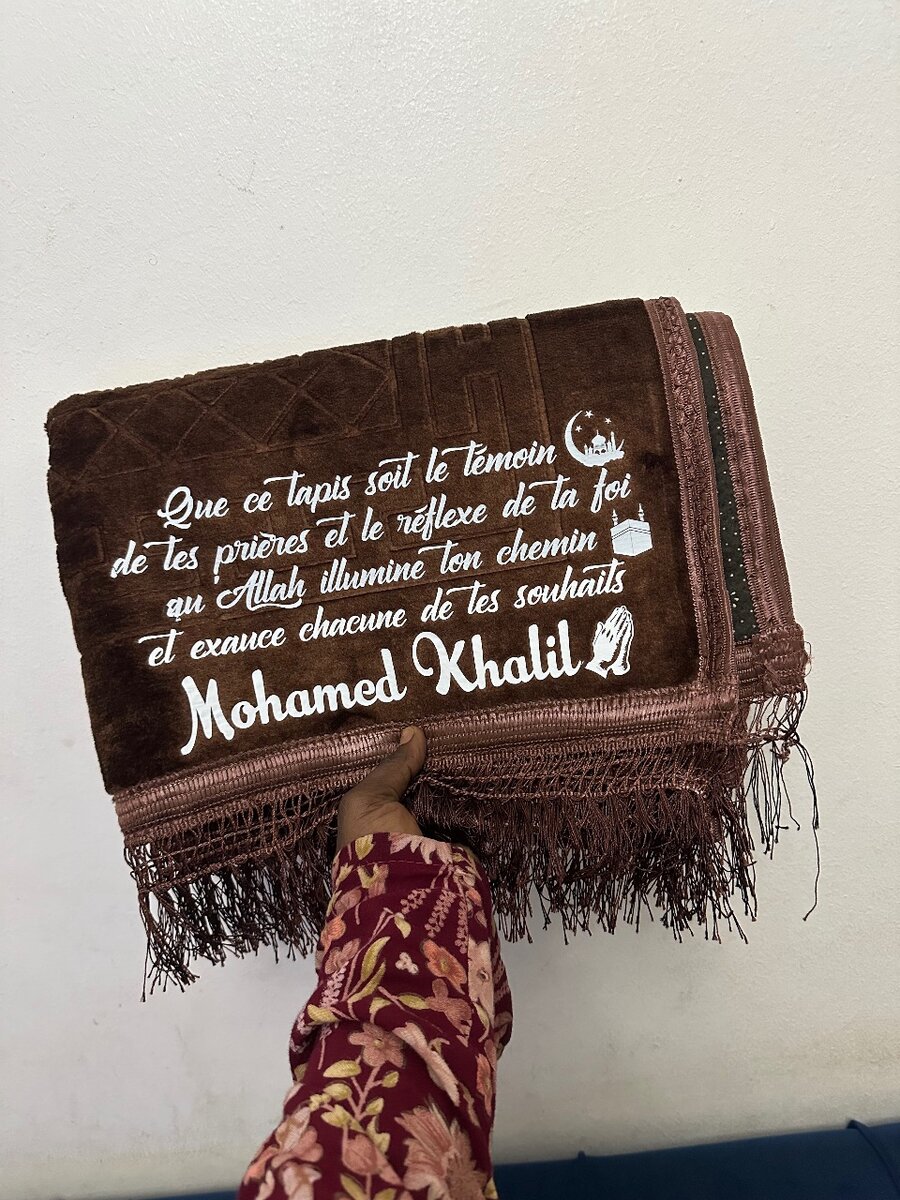 Que ce tapis soit le témoin
de tes prières et le réflexe de ta foi
qu Allah illumine ton chemin
et exauce chacune de tes souhaits
Mohamed Khalil